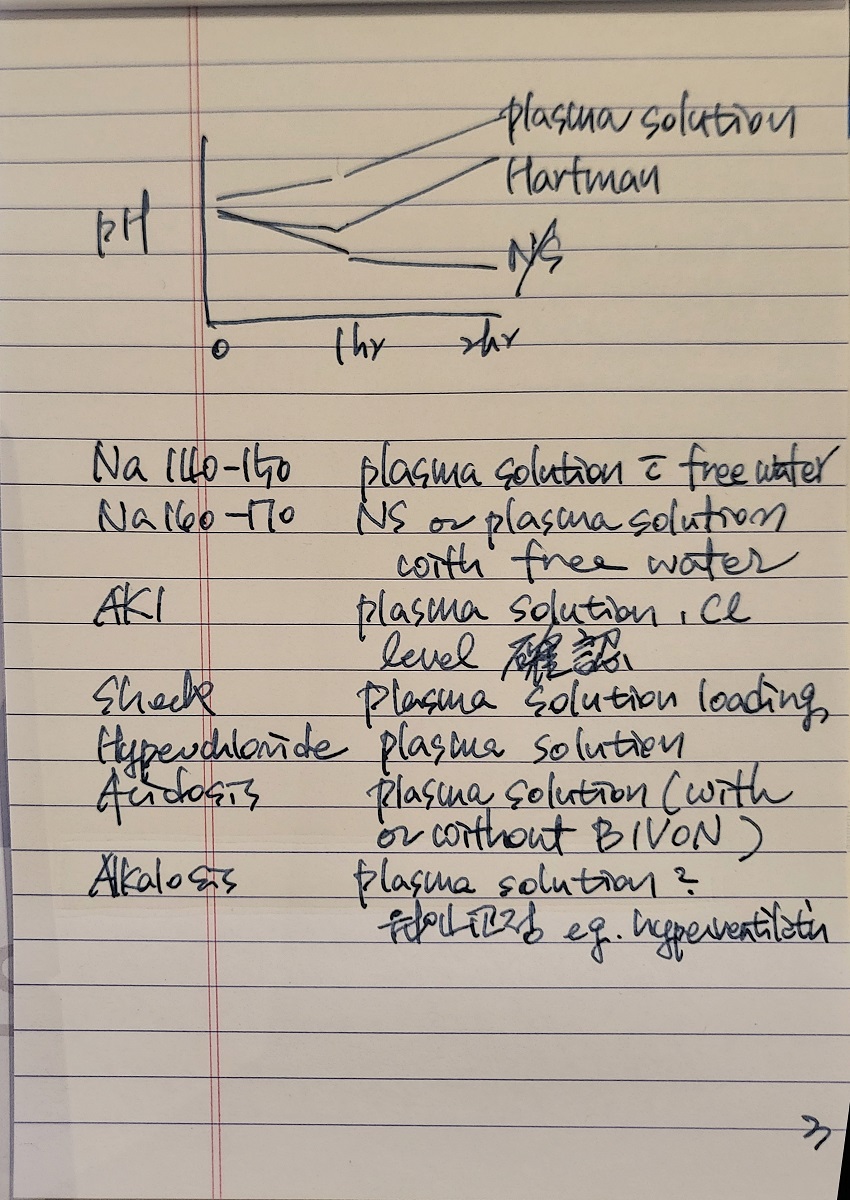 plasma solution
Hartman
pH
N/S
0 1hr 2hr
Na 140-150 plasma solution c̄ free water
Na 160-170 NS or plasma solution
with free water
AKI plasma solution, Cl
level 確認、
Shock plasma solution loading,
Hyperchloride plasma solution
Acidosis plasma solution (with
or without BIVON)
Alkalosis plasma solution?
eg. hyperventilatin
3